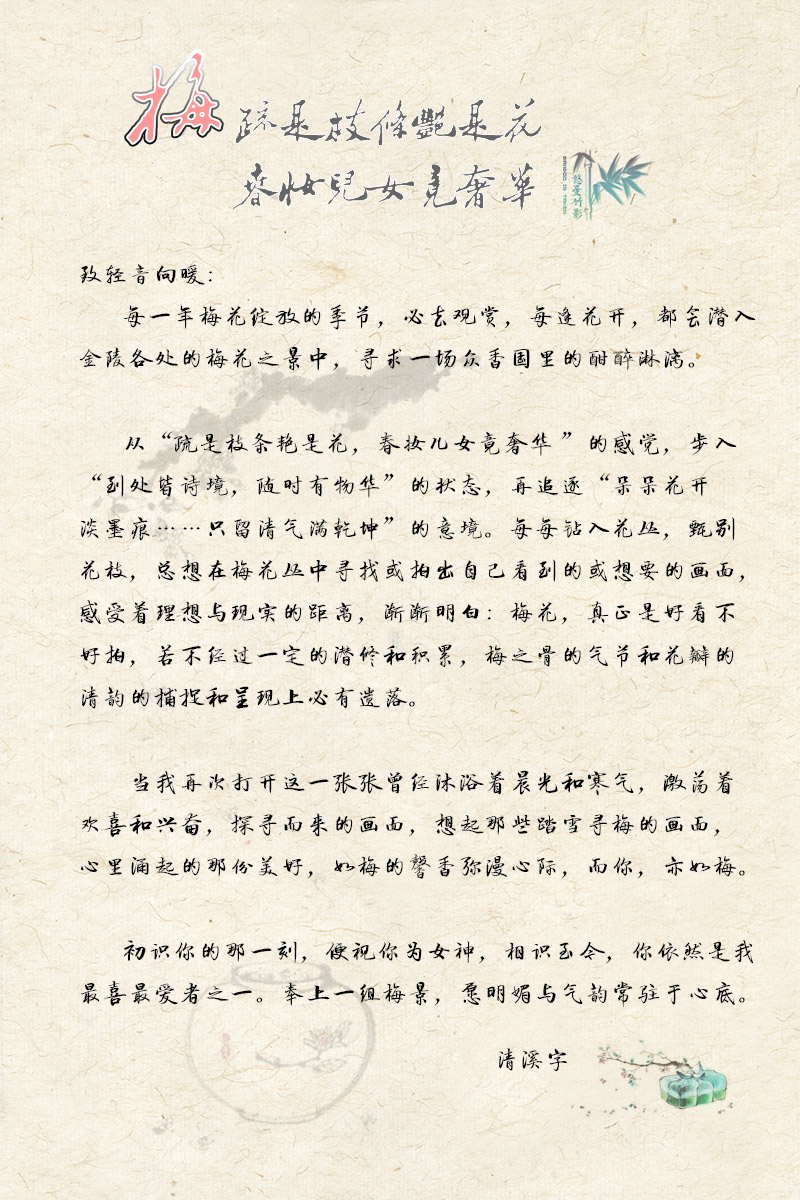 梅
疏是枝條艷是花
春妝兒女竟奢華
悠曼竹影
致轻音向暖：
每一年梅花绽放的季节，必去观赏，每逢花开，都会潜入
金陵各处的梅花之景中，寻求一场众香国里的酣醉淋漓。
从“疏是枝条艳是花，春妆儿女竟奢华”的感觉，步入
“到处皆诗境，随时有物华”的状态，再追逐“朵朵花开
淡墨痕……只留清气满乾坤”的意境。每每钻入花丛，甄别
花枝，总想在梅花丛中寻找或拍出自己看到的或想要的画面，
感受着理想与现实的距离，渐渐明白：梅花，真正是好看不
好拍，若不经过一定的潜修和积累，梅之骨的气节和花瓣的
清韵的捕捉和呈现上必有遗落。
当我再次打开这一张张曾经沐浴着晨光和寒气，激荡着
欢喜和兴奋，探寻而来的画面，想起那些踏雪寻梅的画面，
心里涌起的那份美好，如梅的馨香弥漫心际，而你，亦如梅。
初识你的那一刻，便视你为女神，相识至今，你依然是我
最喜最爱者之一。奉上一组梅景，愿明媚与气韵常驻于心底。
清溪字